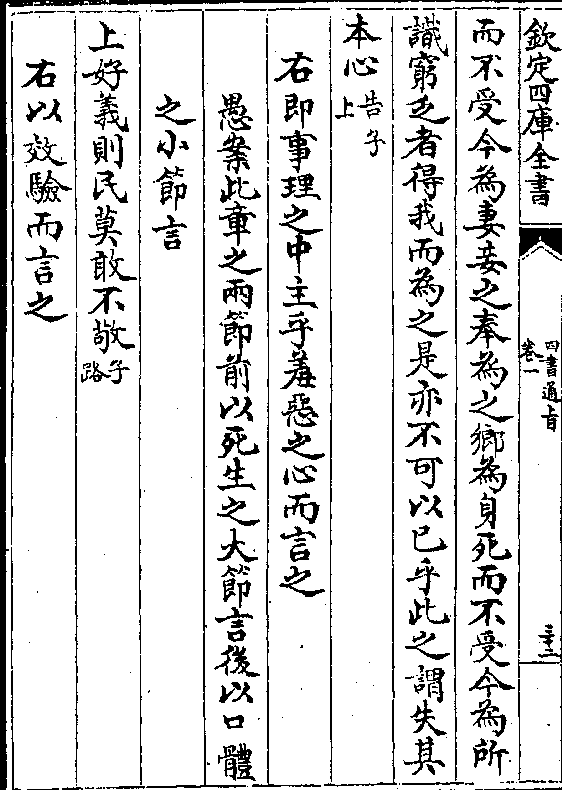 欽定四庫全書
四書通旨
卷一
三十二
而不受今為妻妾之奉為之鄉為身死而不受今為所
識窮乏者得我而為之是亦不可以已乎此之謂失其
本心告子上
右即事理之中主乎羞惡之心而言之
愚案此章之兩節前以死生之大節言後以口體
之小節言
上好義則民莫敢不敬子路
右以效驗而言之